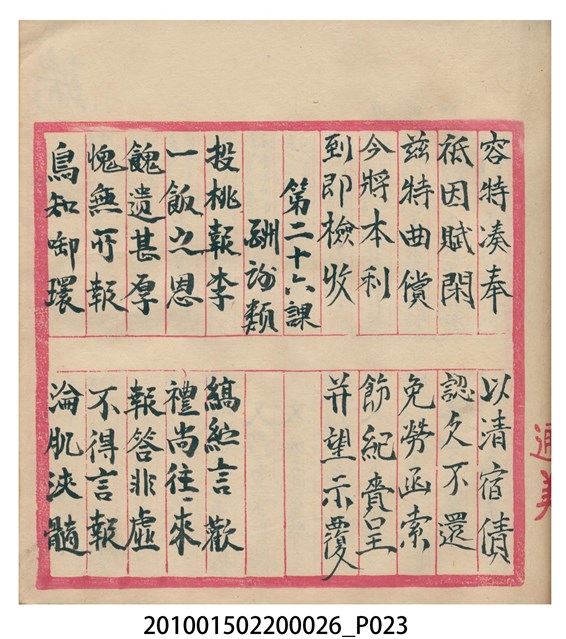 容特湊奉 以清宿債
祗因賦閑 認久不還
茲特曲償 免勞函索
今將本利 飭紀賫呈
到即檢收 并望示覆
第二十六課
酬謝類
投桃報李 縞紵言歡
一飯之恩 禮尚往來
餽遺甚厚 報答非虛
愧無可報 不得言報
鳥知啣環 淪肌浹髓
201001502200026_P023